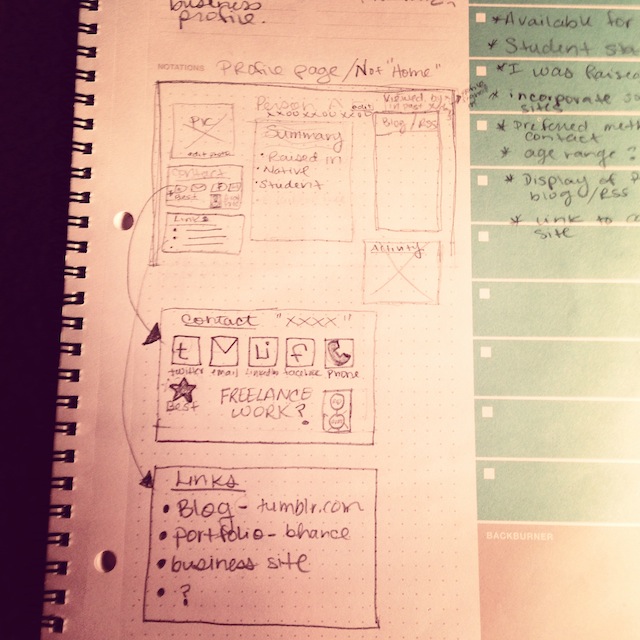 business
profile.
NOTATIONS
Profile page/Not "Home"
Person A
edit
Viewed by
Pic
Summary
• Raised in
• Native
• Student
Blog/RSS
Contact
Best
Links
Activity
Contact "XXXX"
t
Li
f
twitter
email
LinkedIn
facebook
Phone
Best
FREELANCE
WORK?
Links
• Blog - tumblr.com
• portfolio - bhance
• business site
• ?
* Available for
* Student sta
* I was Raised
* incorporate so
sites
* Preferred meth
contact
* age range?
* Display of P
blog/RSS
* Link to c
site
BACKBURNER